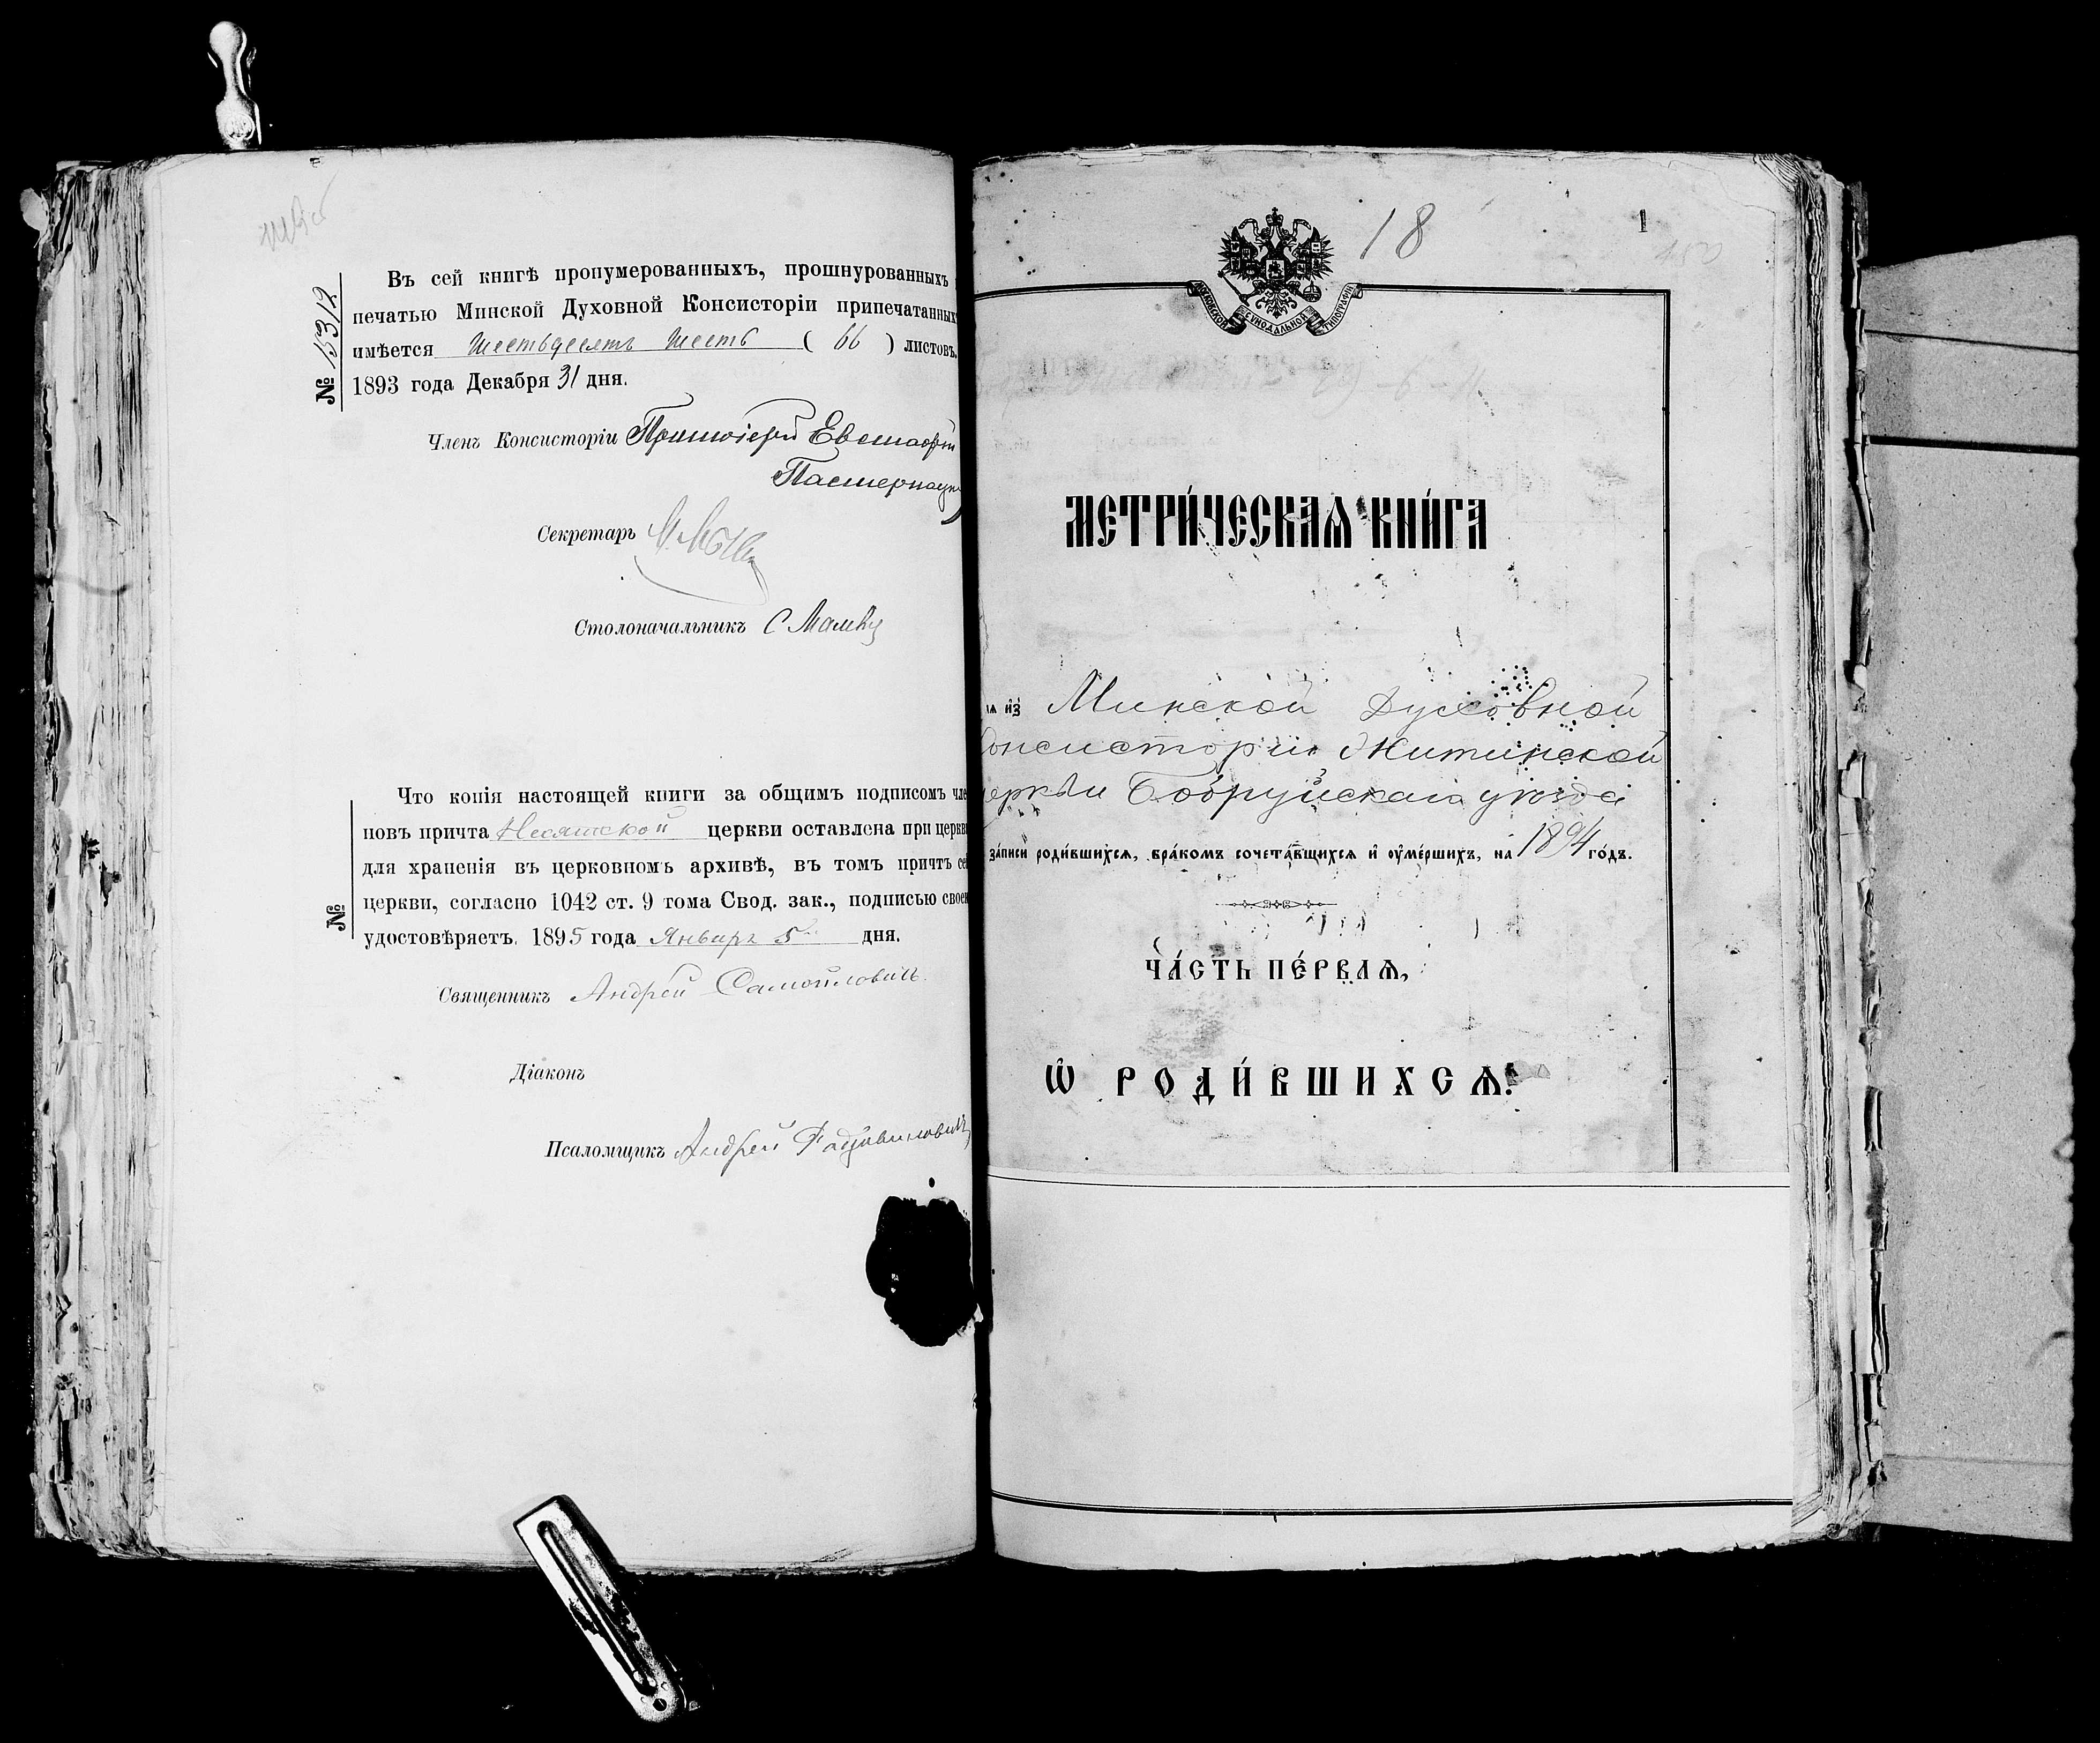 № 15312
Въ сей книгѣ пронумерованныхъ, прошнурованныхъ
печатью Минской Духовной Консисторіи припечатанных
имѣется шестьдесятъ шесть ( 66 ) листовъ.
1893 года Декабря 31 дня.
Членъ Консисторіи Протоіерей Евстафій
Секретарь
Столоначальникъ С
№
Что копія настоящей книги за общимъ подписомъ чле
новъ причта Несятской церкви оставлена при церкви
для храненія въ церковномъ архивѣ, въ томъ причтъ сей
церкви, согласно 1042 ст. 9 тома Свод. зак., подписью своею
удостовѣряетъ. 1895 года Январь 5 дня.
Священникъ Андрей Самойловичъ.
Діаконъ
Псаломщикъ Андрей
18
1
МОСКОВСКОЙ СѴНОДАЛЬНОЙ ТИПОГРАФІИ
МЕТРИ́ЧЕСКАѦ КНИ́ГА
из̾ Минской Духовной
Консисторіи Житинской
церкви Бобруйскаго уѣзда
за́писи роди́вшихсѧ, бра́комъ сочета́вшихсѧ и҆ ᲂу҆ме́ршихъ, на 1894 го́дъ.
ЧА́СТЬ ПЕ́РВАѦ,
Ѡ҆ РОДИ́ВШИХСѦ.